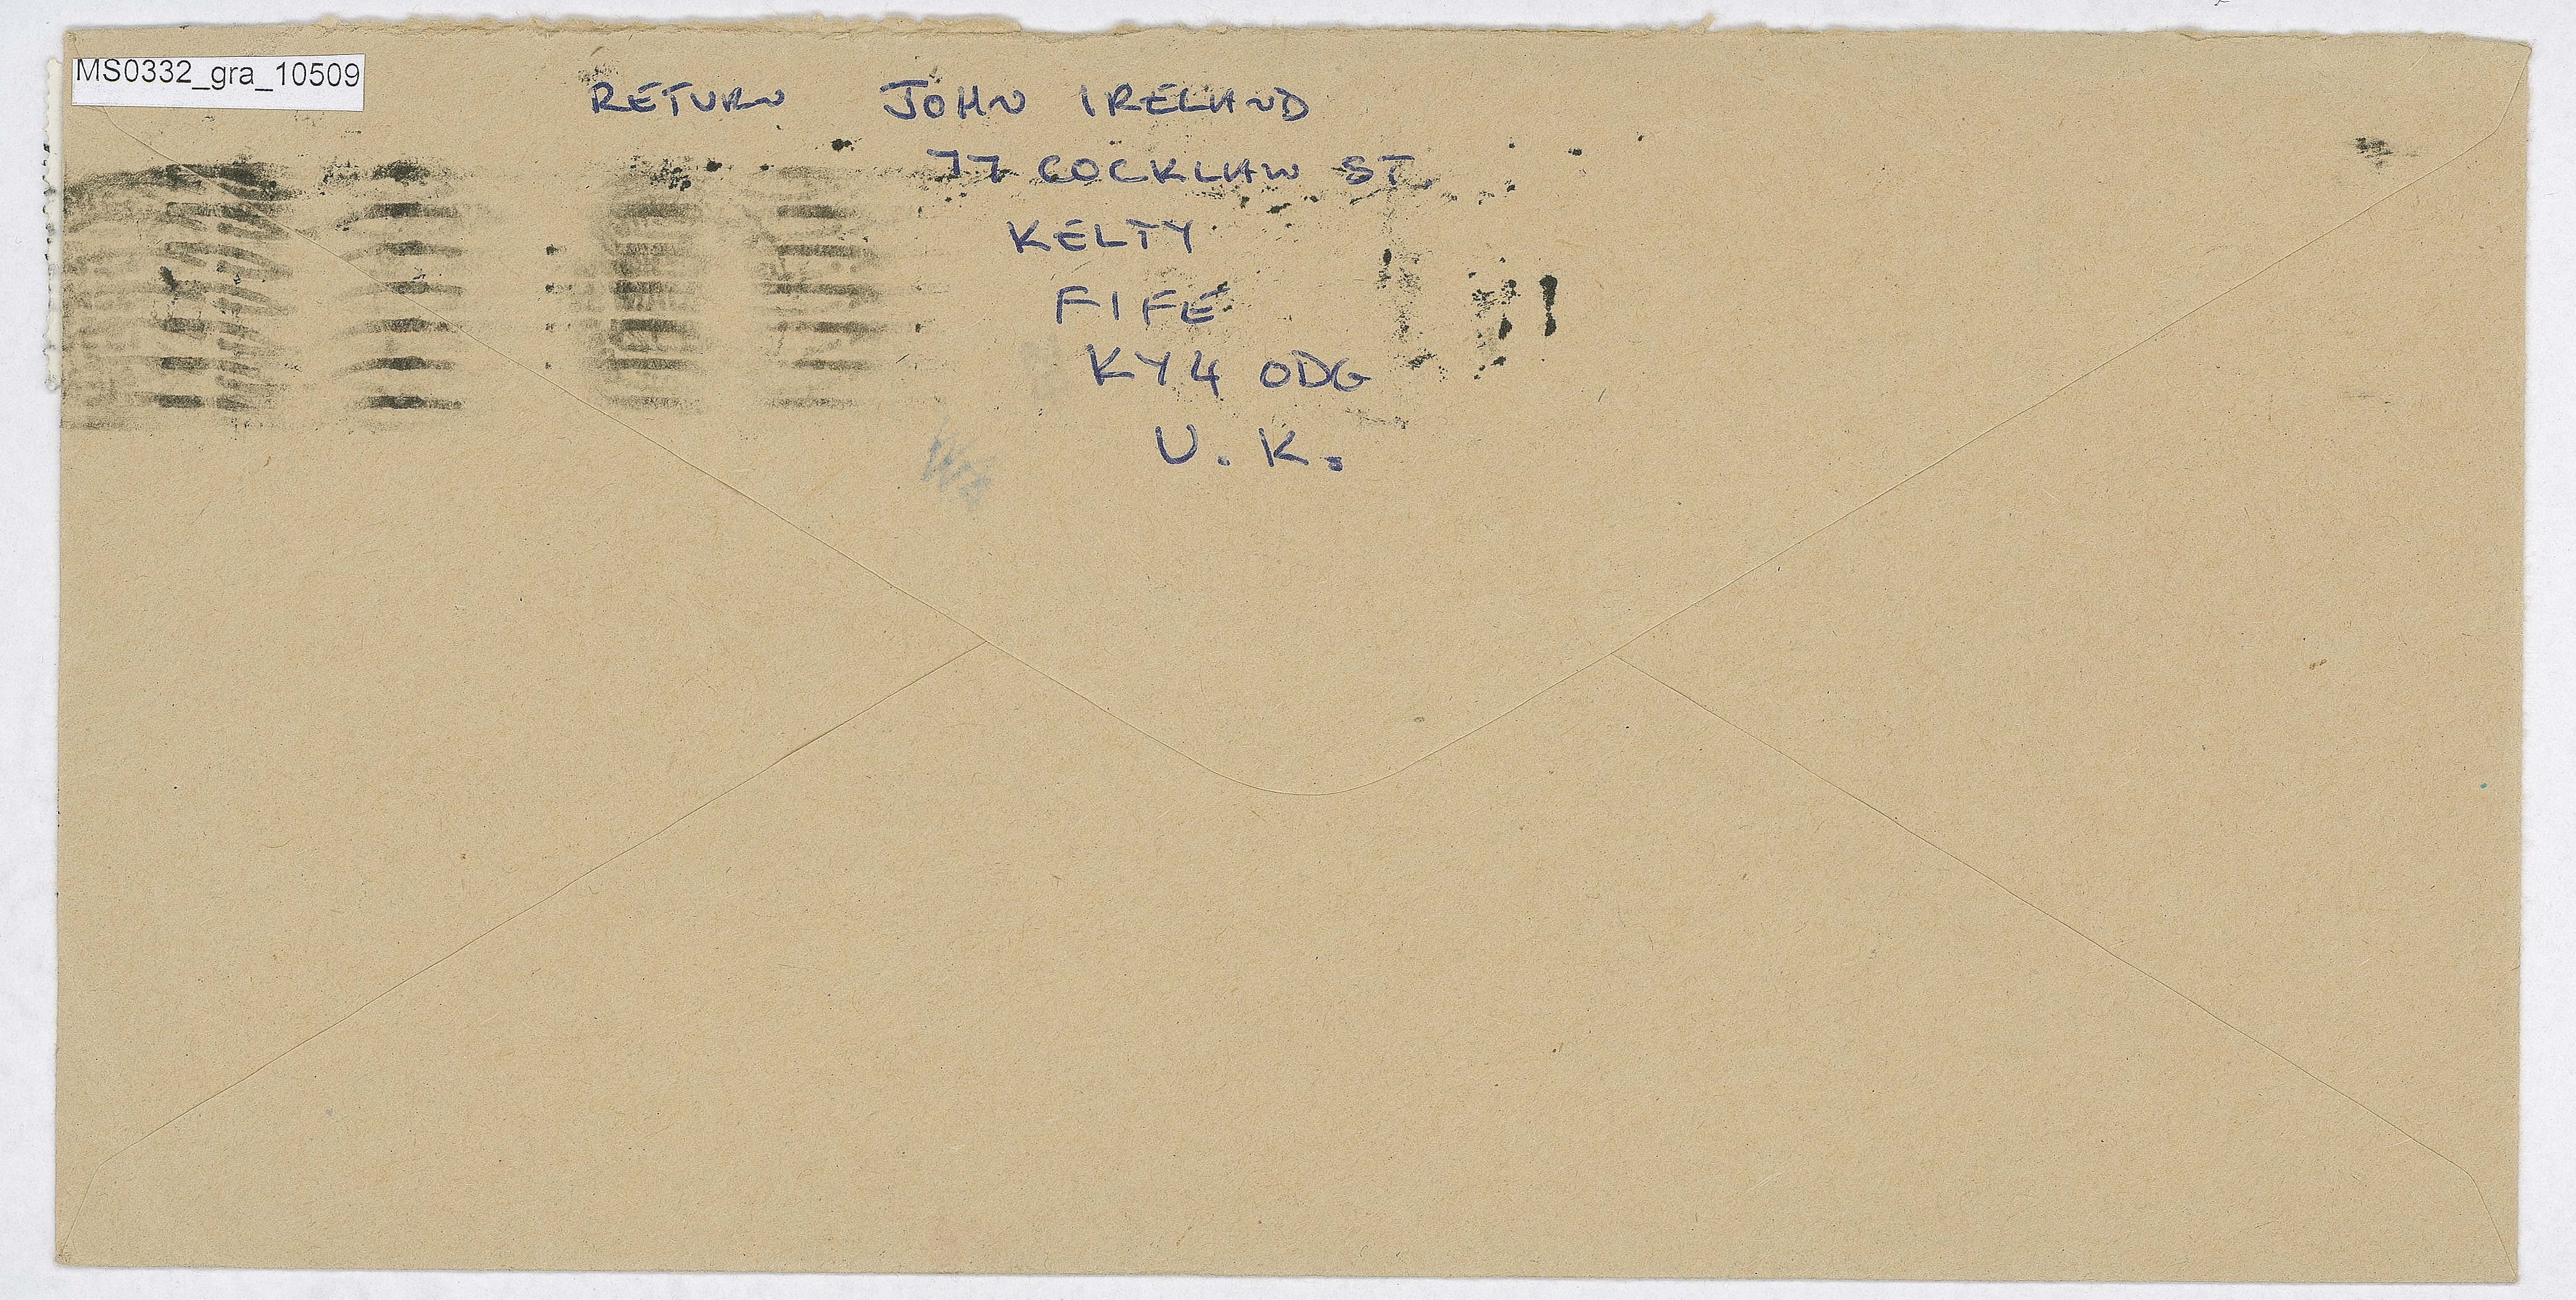 MS0332_gra_10509
RETURN JOHN IRELAND
77 COCKLAW ST.
KELTY
FIFE
KY4 0DG
U.K.